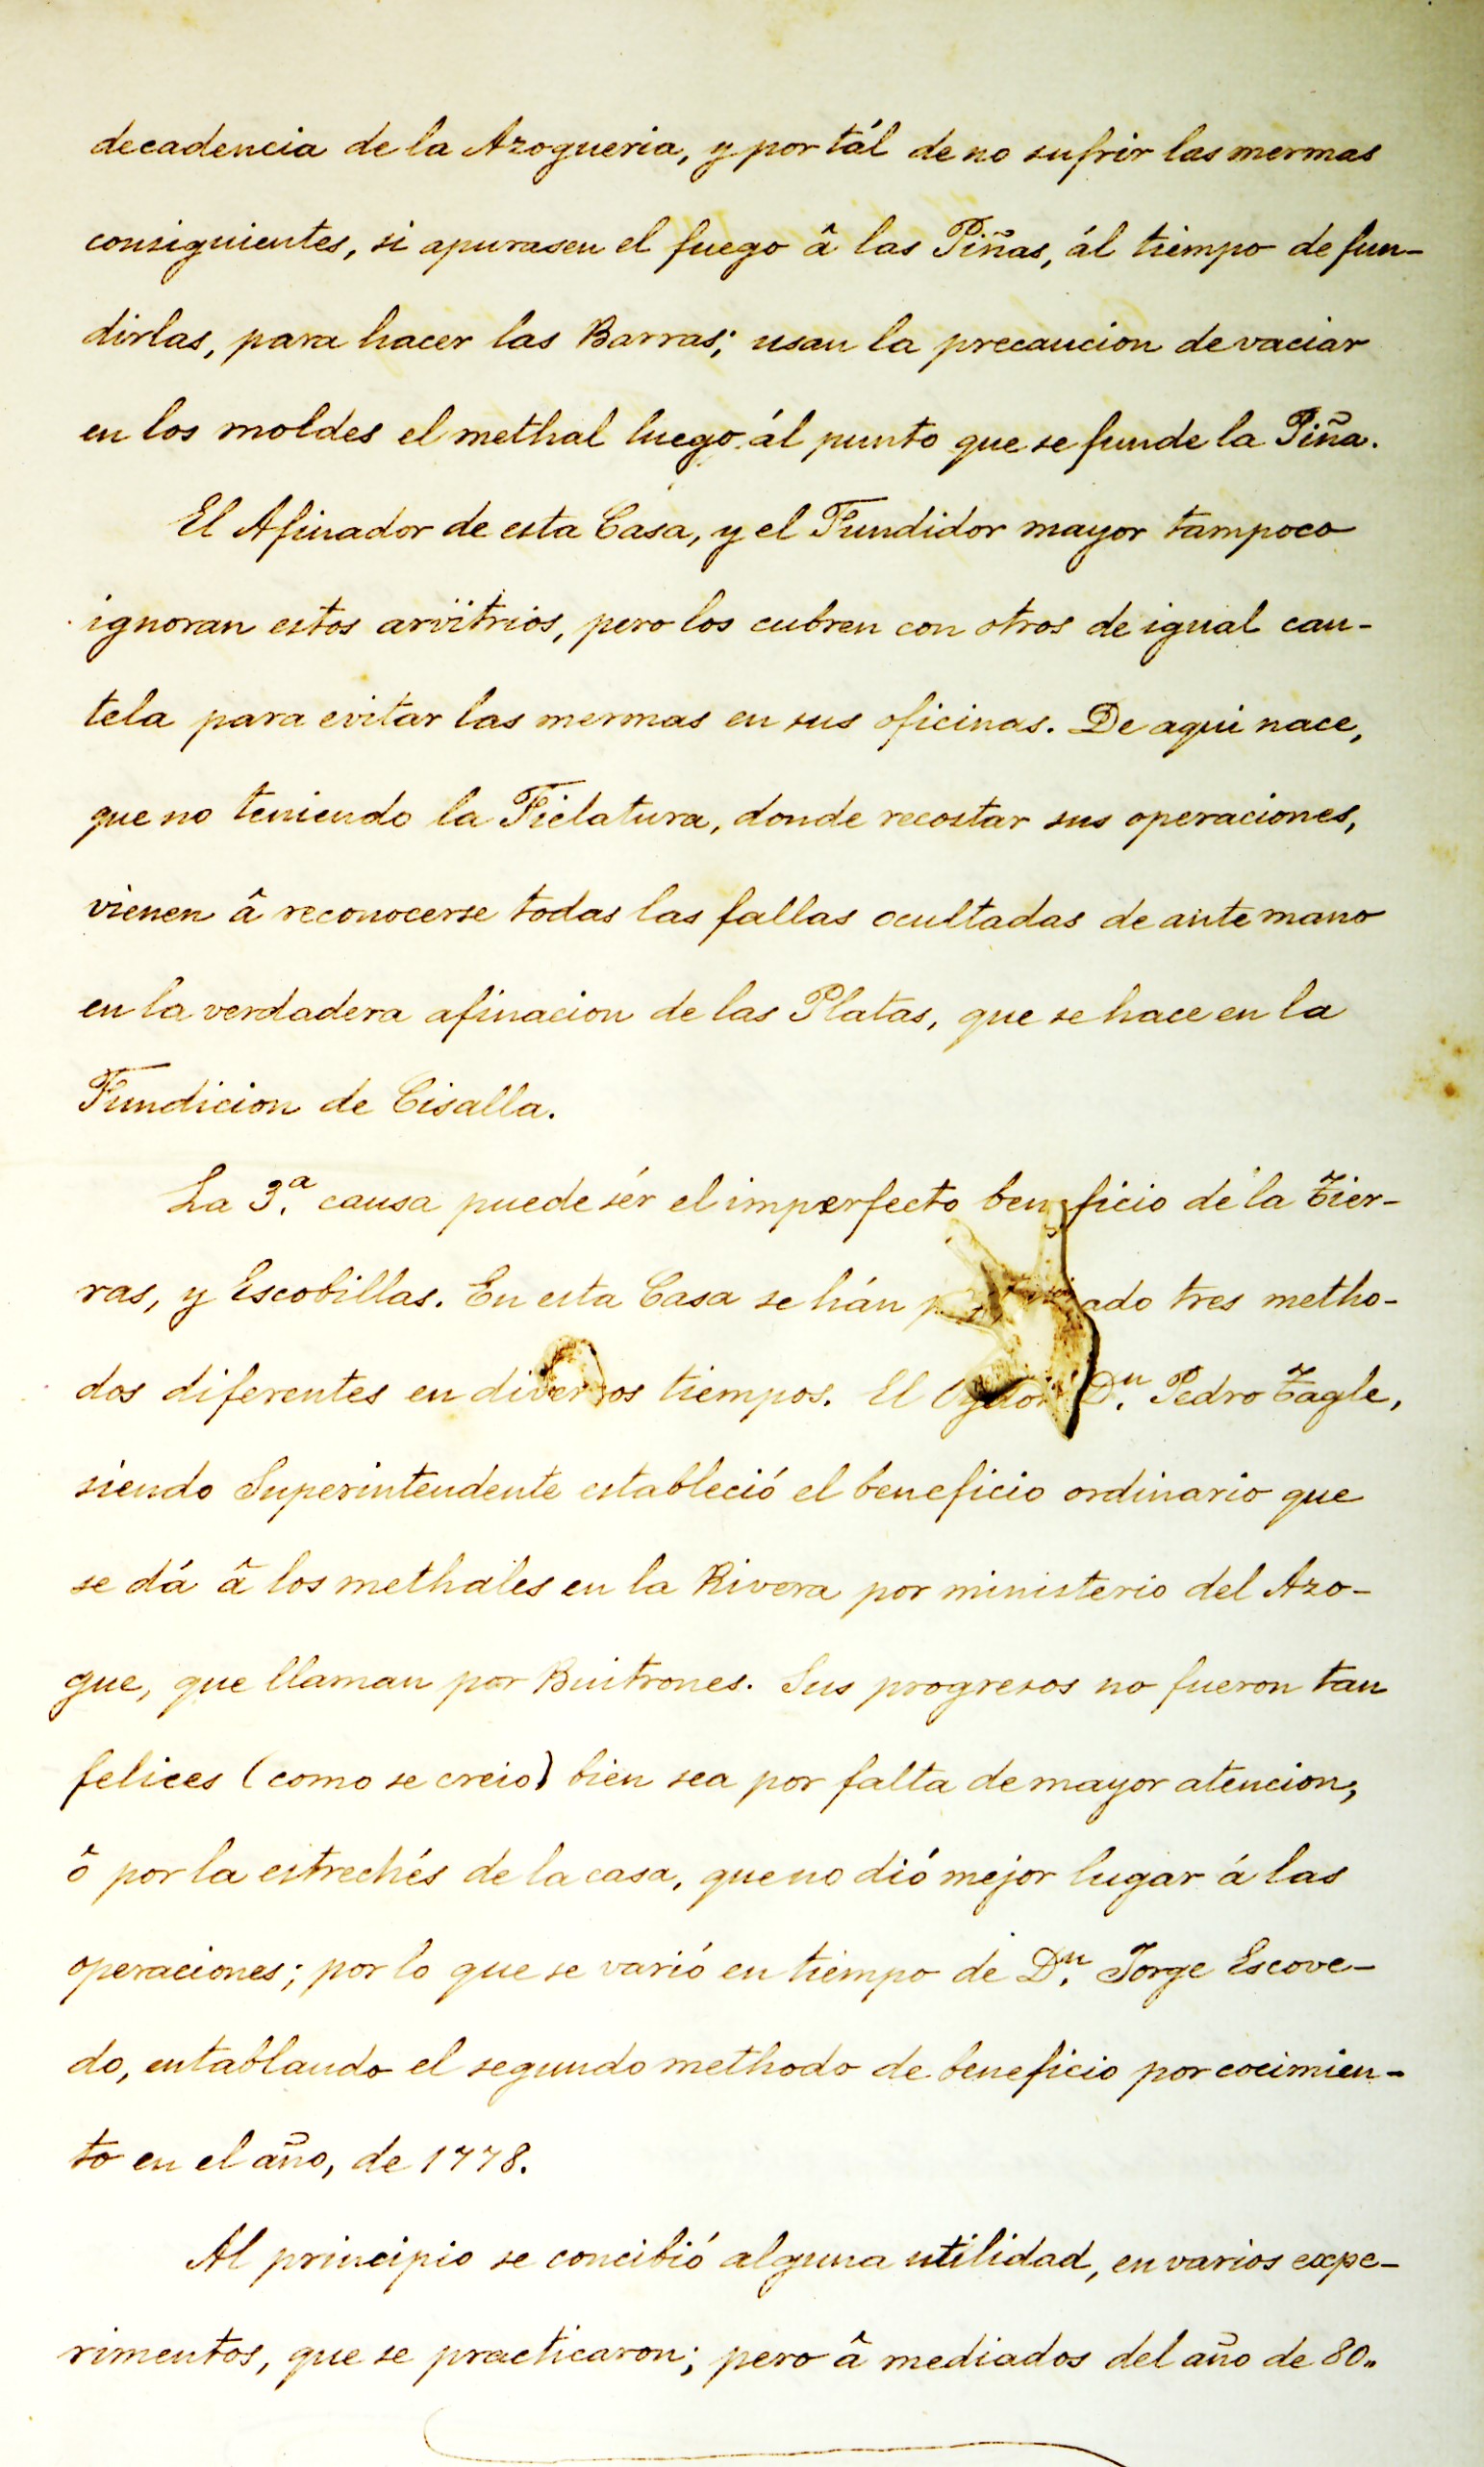 decadencia de la Azogueria, y por tál de no sufrir las mermas
consiguientes, si apurasen el fuego â las Piñas, ál tiempo de fun-
dirlas, para hacer las Barras; usan la precaucion de vaciar
en los moldes el methal luego ál punto que se funde la Piña.
El Afinador de esta Casa, y el Fundidor mayor tampoco
ignoran estos arvitrios, pero los cubren con otros de igual cau-
tela para evitar las mermas en sus oficinas. De aqui nace,
que no teniendo la Fielatura, donde recostar sus operaciones,
vienen â reconocerse todas las fallas ocultadas de ante mano
en la verdadera afinacion de las Platas, que se hace en la
Fundicion de Cisalla.
La 3.ª causa puede sér el imperfecto beneficio de la Tier-
ras, y Escobillas. En esta Casa se hán tres metho-
dos diferentes en diversos tiempos. El Oydor D.n Pedro Tagle,
siendo Superintendente estableció el beneficio ordinario que
se dá â los methales en la Rivera por ministerio del Azo-
gue, que llaman por Buitrones. Sus progresos no fueron tan
felices (como se creio) bien sea por falta de mayor atencion;
ô por la estrechés de la casa, que no dió mejor lugar á las
operaciones; por lo que se varió en tiempo de D.n Jorge Escove-
do, entablando el segundo methodo de beneficio por cocimien-
to en el año, de 1778.
Al principio se concibió alguna utilidad, en varios expe-
rimentos, que se practicaron; pero â mediados del año de 80..